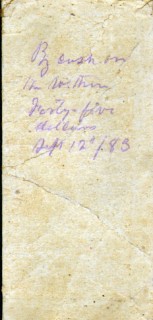 By cash on
the within
Forty-five
dollars
Sept 12th /83